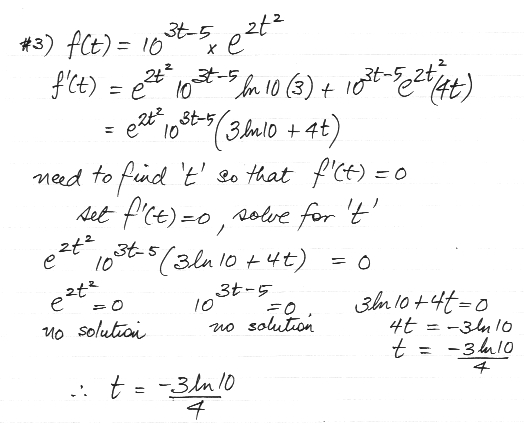 #3) f(t) = 10^{3t-5} × e^{2t²}
f'(t) = e^{2t²} 10^{3t-5} ln 10 (3) + 10^{3t-5} e^{2t²} (4t)
= e^{2t²} 10^{3t-5} (3ln10 + 4t)
need to find 't' so that f'(t) = 0
set f'(t) = 0, solve for 't'
e^{2t²} 10^{3t-5} (3ln 10 + 4t) = 0
e^{2t²} = 0 10^{3t-5} = 0, 3ln 10 + 4t = 0
no solution no solution 4t = -3ln 10
t = -3ln10/4
∴ t = -3ln10/4